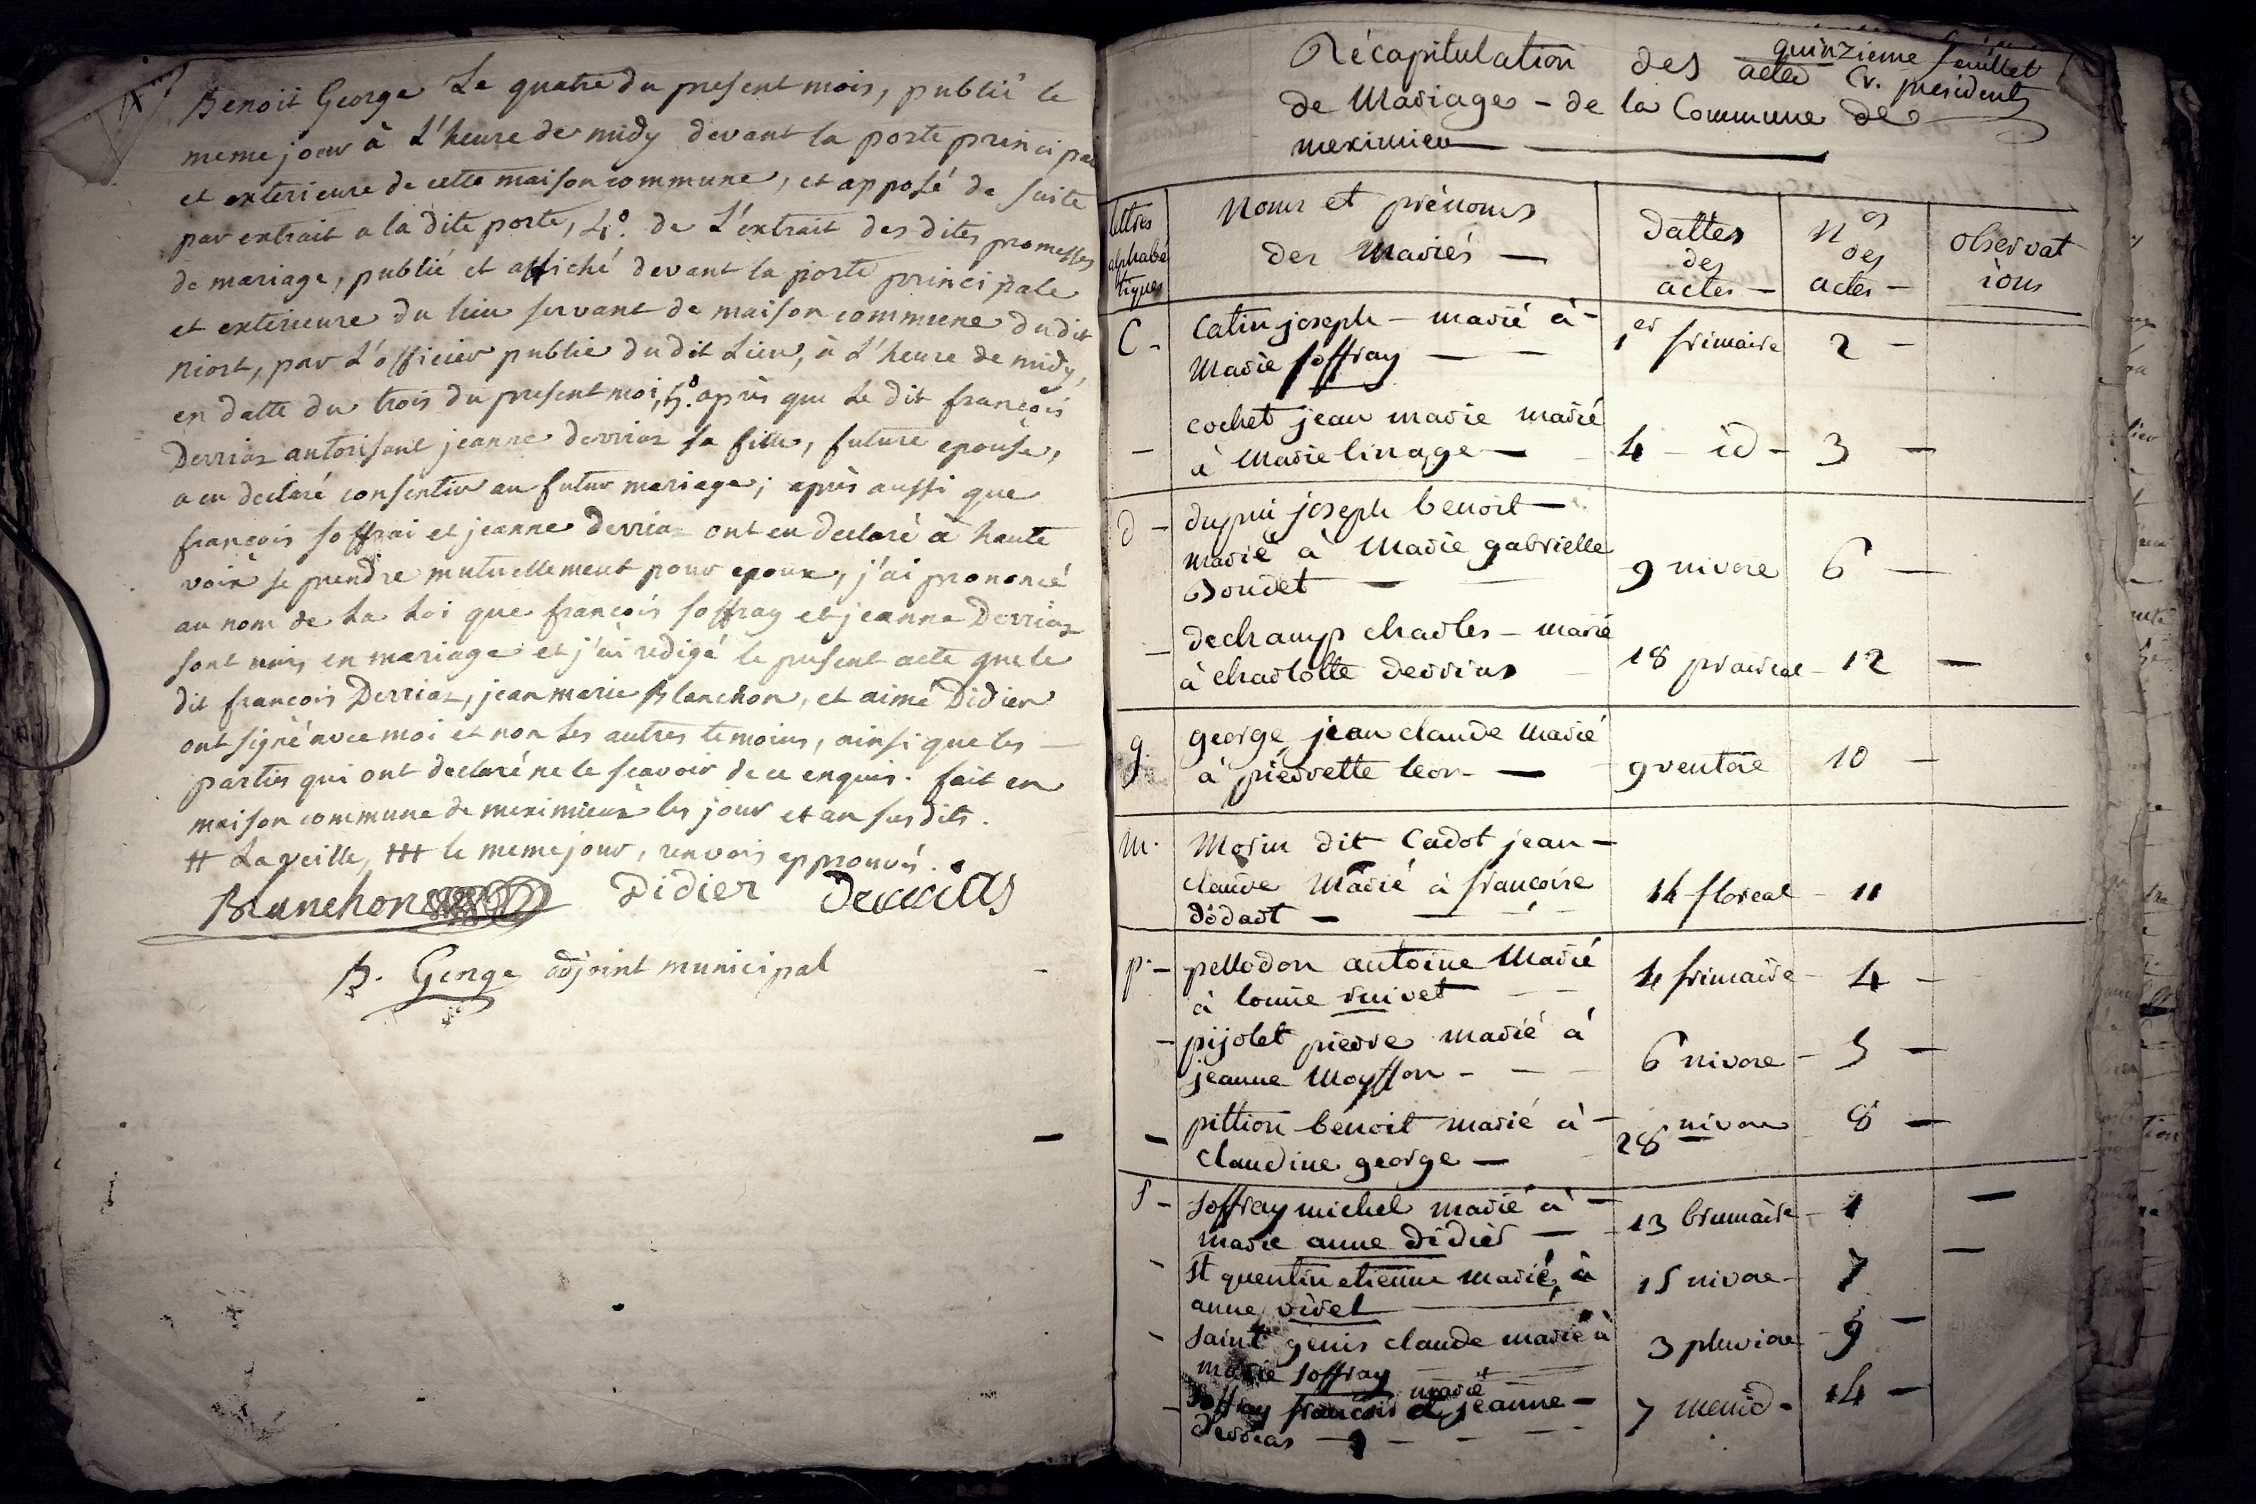 Benoit George Le quatre du present mois, publié le
meme jour à L'heure de midy devant la porte principale
et exterieure de cette maison commune, et apposé de suite
par extrait a la dite porte, 4°. de L'extrait des dites promesses
de mariage, publié et affiché devant la porte principale
et exterieure du lieu servant de maison commune dudit
niost, par L'officier public dudit Lieu, à L'heure de midy,
en datte du trois du present mois, 5°. après que Le dit françois
Derrias autorisant jeanne derrias sa fille, future epouse,
a eu declaré consentir au futur mariage; après aussi que
françois soffrai et jeanne Derrias ont eu declaré à haute
voix se prendre mutuellement pour epoux, j'ai prononcé
au nom de La Loi que françois soffray et jeanne Derrias
sont unis en mariage et j'ai redigé le present acte que le
dit françois Derrias, jean marie Blanchon, et aimé Didier
ont signé avec moi et non les autres temoins, ainsi que les
parties qui ont declaré ne le scavoir de ce enquis. fait en
maison commune de meximieux les jour et an susdits.
# La veille, ## le meme jour, renvois approuvés.
Blanchon Didier Derrias
B. George adjoint municipal
quinzieme feuillet
Récapitulation des acte Cr. président
de Mariage - de la Commune de
meximieu
lettres alphabétiques
Noms et prénoms des Mariés
dattes des actes
Nos des actes
observations
C - Catin joseph - marié à -
Marie soffray - 1er frimaire 2 -
- cochet jean marie marié
à Marie linage - 4 - id - 3 -
d - dupui joseph benoit -
marié à Marie gabrielle
Boudet - 9 nivose 6 -
- dechamp charles - marié
à charlotte derrias 18 prairial - 12 -
g. george jean claude Marié
à pierrette leon - 9 ventose 10 -
M. Morin dit Cadot jean -
claude Marié à françoise
dodart - 14 floreal - 11
p. - pellodon antoine Marié
à louise ruivet 4 frimaire - 4 -
- pijolet pierre marié à
jeanne Moysson - 6 nivose - 5 -
- pittion benoit marié à -
Claudine george - 28 nivose 8 -
S - soffray michel marié à -
marie anne didier - 13 brumaire - 1 -
- St quentin etienne marié à
anne virel 15 nivose - 7 -
- saint genis claude marié à
marie soffray 3 pluviose - 9 -
- soffray françois marié à jeanne -
derrias - 7 messid - 14 -